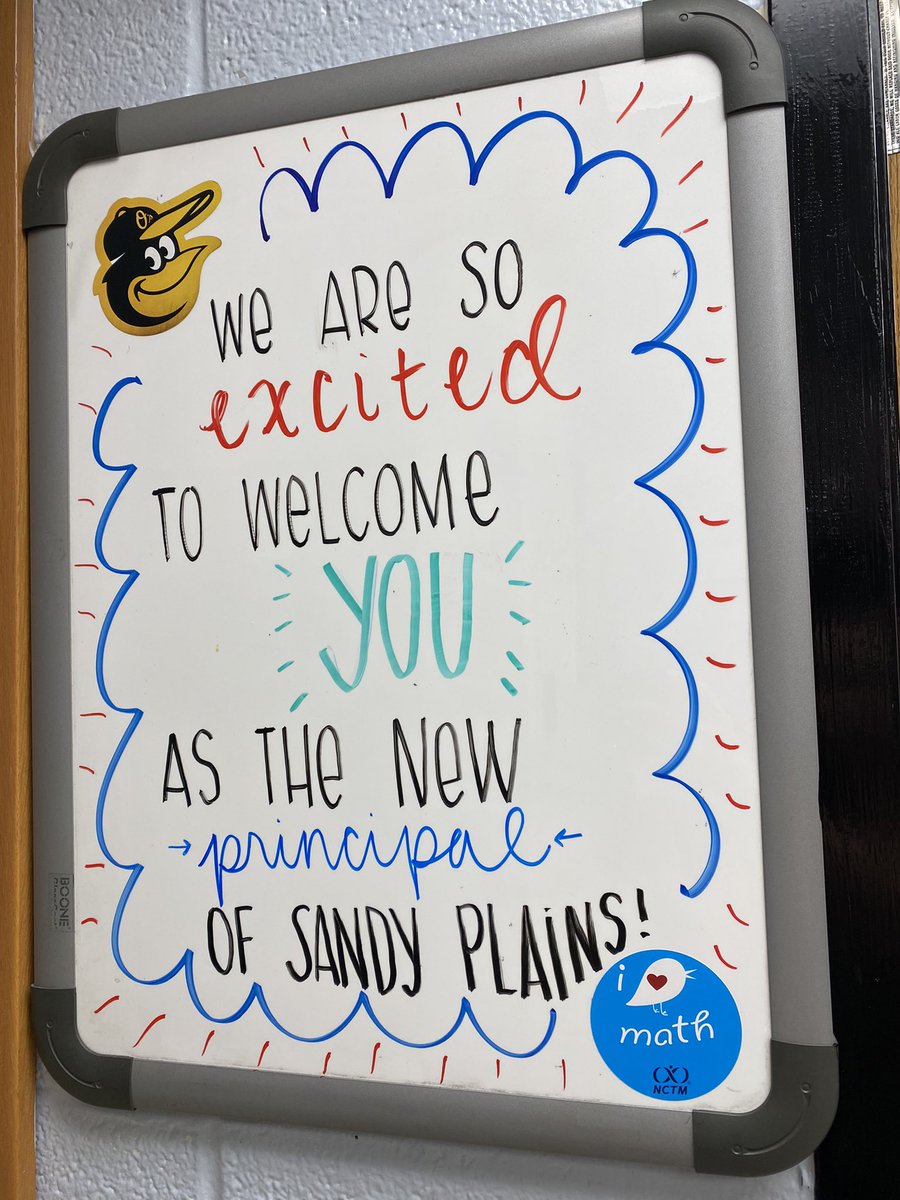 WE ARE SO
excited
TO WELCOME
YOU
AS THE NEW
→principal←
OF SANDY PLAINS!
i
math
NCTM
BOONE